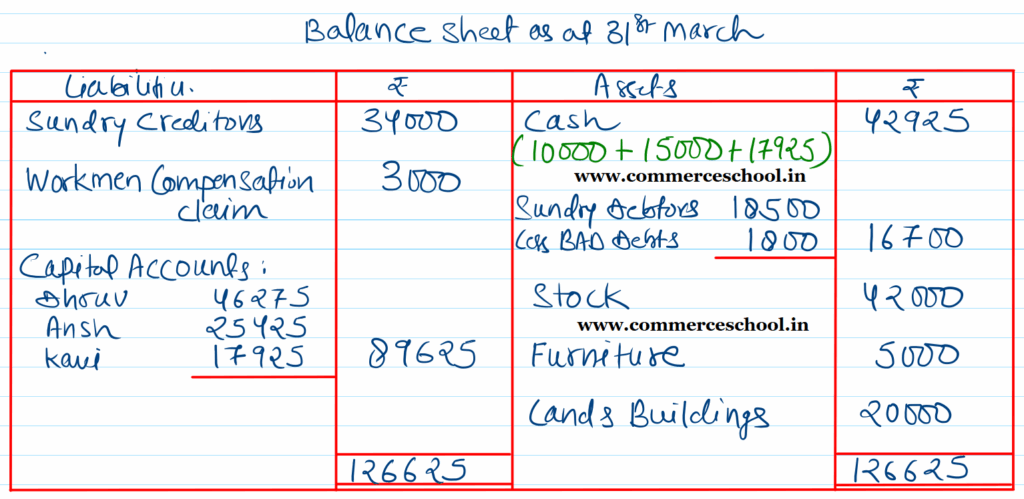 Balance Sheet as at 31st March
Liabilities. ₹ Assets ₹
Sundry Creditors 34000 Cash 42925
(10000 + 15000 + 17925)
www.commerceschool.in
Workmen Compensation claim 3000
Sundry Debtors 18500
Less BAD Debts 1800 16700
Capital Accounts:
Dhruv 46275 Stock 42000
Ansh 25425
www.commerceschool.in
Kavi 17925 89625 Furniture 5000
Land & Buildings 20000
126625 126625